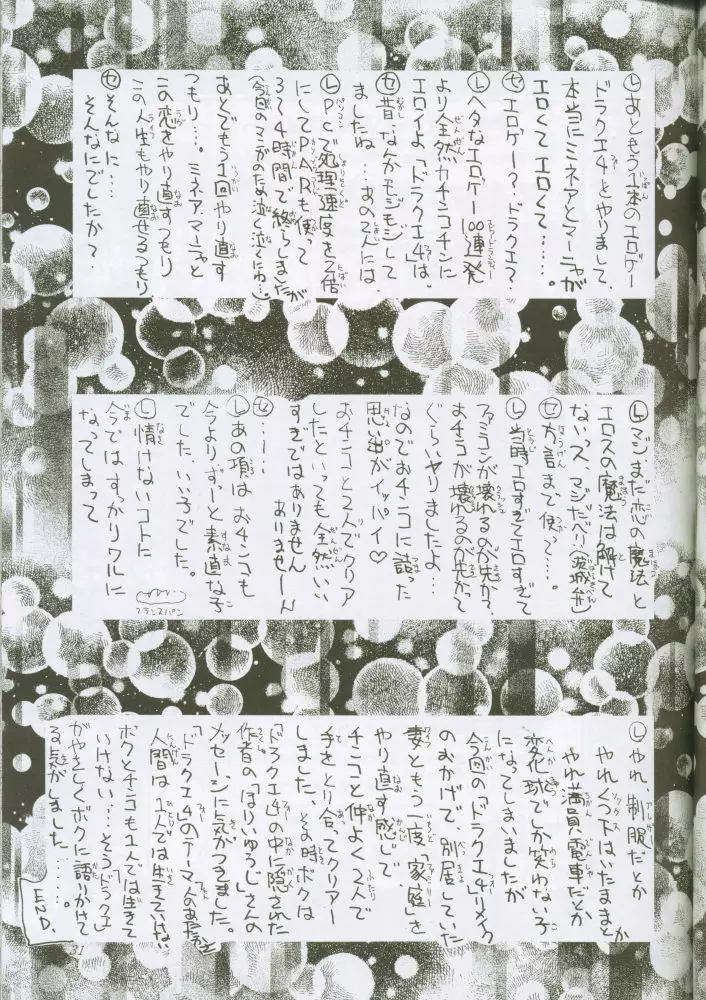 Ⓛあともう1本のエロゲー
ドラクエ4とやりまして、
本当にミネアとマーニャが
エロくてエロくて……。
Ⓣエロゲー??ドラクエ?
Ⓛヘタなエロゲー100連発
より全然カチンコチンに
エロイよ「ドラクエ4」は。
Ⓣ昔、なんかモジモジして
ましたね…あの2人には。
ⓁPCで処理速度を2倍
にしてPARも使って
3〜4時間で終らしましたが
(今回のマンガの長は泣く泣くにゅ…)
あとでもう1回やり直す
つもり…。ミネア、マーニャと
この恋をやり直すつもり
この人生もやり直せるつもり
Ⓣそんなに……
そんなにでしたか?
Ⓛマジまだ恋の魔法と
エロスの魔法は解けて
ないっス、マジだべり(茨城弁)
Ⓣ方言まで使って…。
Ⓛ当時エロすぎてエロすぎて
ファミコンが壊れるのが先か?
おチコが壊れるのが先かって
ぐらいヤリましたよ…
なのでおチンコに誤った
思い出がイッパイ♡
おチンコと2人でクリア
したといっても全然いい
すぎではありません
ありませーん
Ⓣ……
Ⓛあの頃はおチンコも
今よりずーと素直な子
でした。いい子でした。
Ⓛ情けないコトに
今ではすっかりワルに
なってしまって
フランスパン
Ⓛやれ、制服だとか
やれくつ下はいたままとか
やれ満員電車だとか
変化球でしか笑わない子
になってしまいましたが
今回の「ドラクエ4」リメイク
のおかげで、別居していた
妻ともう一度「家庭」を
やり直す感じで、
チンコと仲よく2人で
手をとり合ってクリアー
しました。その時ボクは
「ドラクエ4」の中に隠された
作者の「ほりいゆうじ」さんの
メッセージに気がつきました。
「ドラクエ4」のテーマ
人間は1人では生きていけない
ボクとチンコも1人では生きて
いけない…そうドラクエ
がやさしくボクに語りかけて
る気がしました……。
END.
31